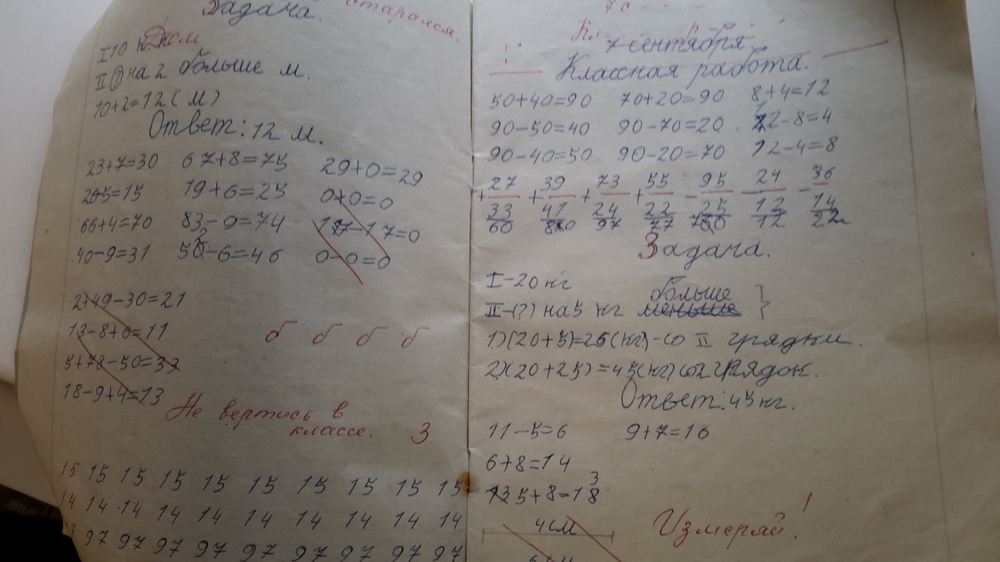 Задача.
старался.
I 10 м
Дом
II (?) на 2 больше м.
10+2=12(м)
Ответ: 12 м.
23+7=30 67+8=75 29+0=29
20-5=15 19+6=25 0+0=0
66+4=70 83-9=74 17-17=0
40-9=31 52-6=46 0-0=0
2+49-30=21
13-8+0=11
5+78-50=33
18-9+4=13
б б б б
Не вертись в
классе. 3
15 15 15 15 15 15 15 15 15 15
14 14 14 14 14 14 14 14 14 14
97 97 97 97 97 97 97 97 97
7 сентября.
Классная работа.
50+40=90 70+20=90 8+4=12
90-50=40 90-70=20 12-8=4
90-40=50 90-20=70 12-4=8
+27 +39 +73 +55 -95 -24 -36
33 41 24 22 25 12 14
60 80 97 77 70 12 22
Задача.
I-20 кг
II-(?) на 5 кг больше меньше }
1)(20+5)=25(кг)-со II грядки.
2)(20+25)=45(кг) со 2 грядок.
Ответ: 45 кг.
11-5=6 9+7=16
6+8=14
5+8=13
4 см
Измеряй!